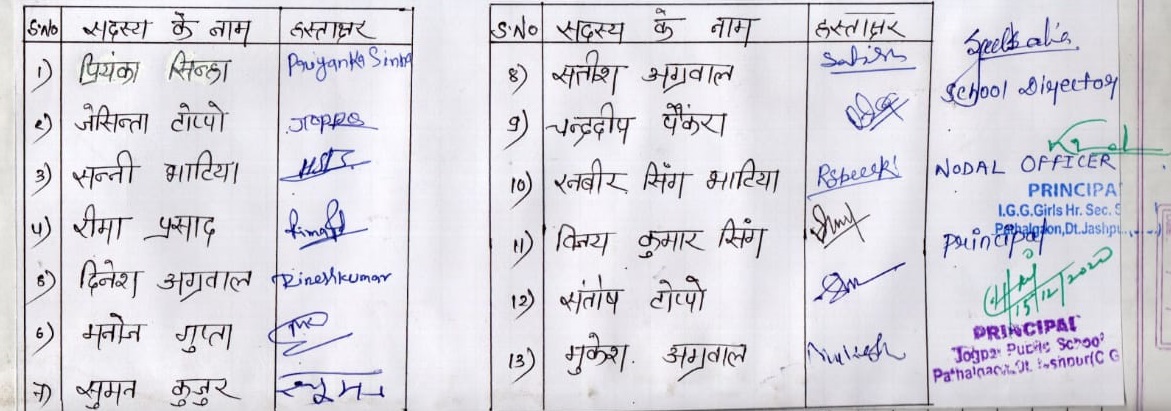 S.No सदस्य के नाम हस्ताक्षर
1) प्रियंका सिन्हा Priyanka Sinha
2) जेसिन्ता टोप्पो Toppo
3) सन्नी भाटिया
4) रीमा प्रसाद
5) दिनेश अग्रवाल Dineshkumar
6) मनोज गुप्ता
7) सुमन कुजुर
S.No सदस्य के नाम हस्ताक्षर
8) सतीश अग्रवाल Satish
9) चन्द्रदीप पैंकरा
10) रनबीर सिंग भाटिया
11) विजय कुमार सिंग
12) संतोष टोप्पो
13) मुकेश अग्रवाल Mukesh
School Director
NODAL OFFICER
PRINCIPA
I.G.G.Girls Hr. Sec. S
Pathalgaon,Dt.Jashpu
principal
15/12/2020
PRINCIPAL
Public School
Pathalgaon